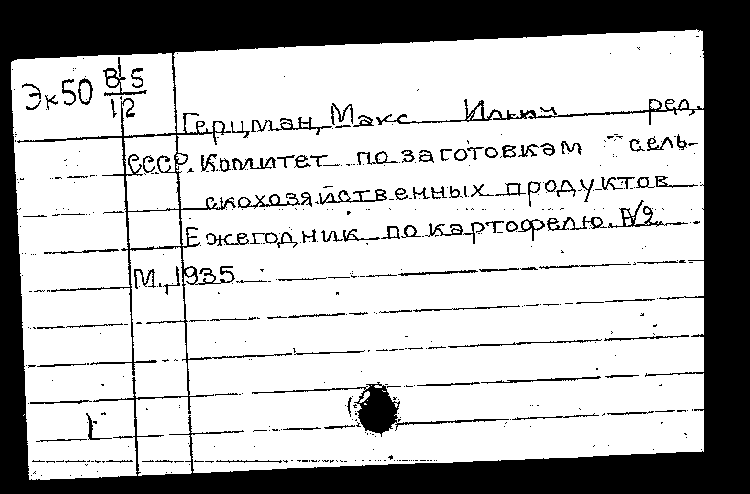 Эк50 В-5
12
Герцман, Макс Ильич ред.
СССР. Комитет по заготовкам сель-
скохозяйственных продуктов
Ежегодник по картофелю. №2.
М., 1935